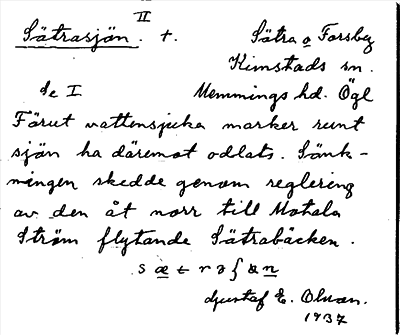 Sätrasjön. II †. Sätra o Forsby
Kimstads sn.
Se I Memmings hd. Ögl
Förut vattensjuka marker runt
sjön ha däremot odlats. Sänk-
ningen skedde genom reglering
av den åt norr till Motala
Ström flytande Sätrabäcken.
Gustaf E. Olsson.
1937